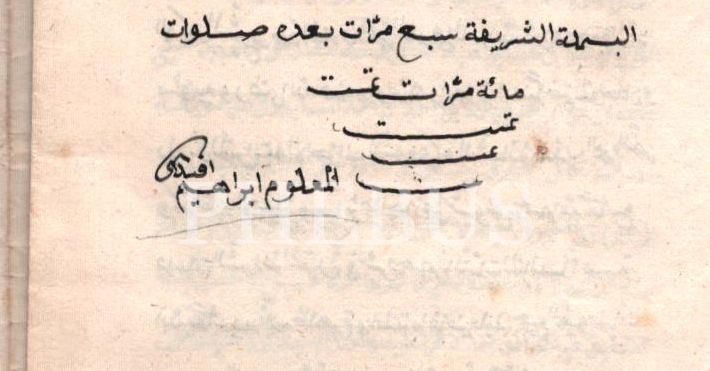 البسملة الشريفة سبع مرّات بعده صلوات
مائة مرّات تمّت
تمّت
تمت
تمت
المعلوم ابراهيم افندى
PHEBUS